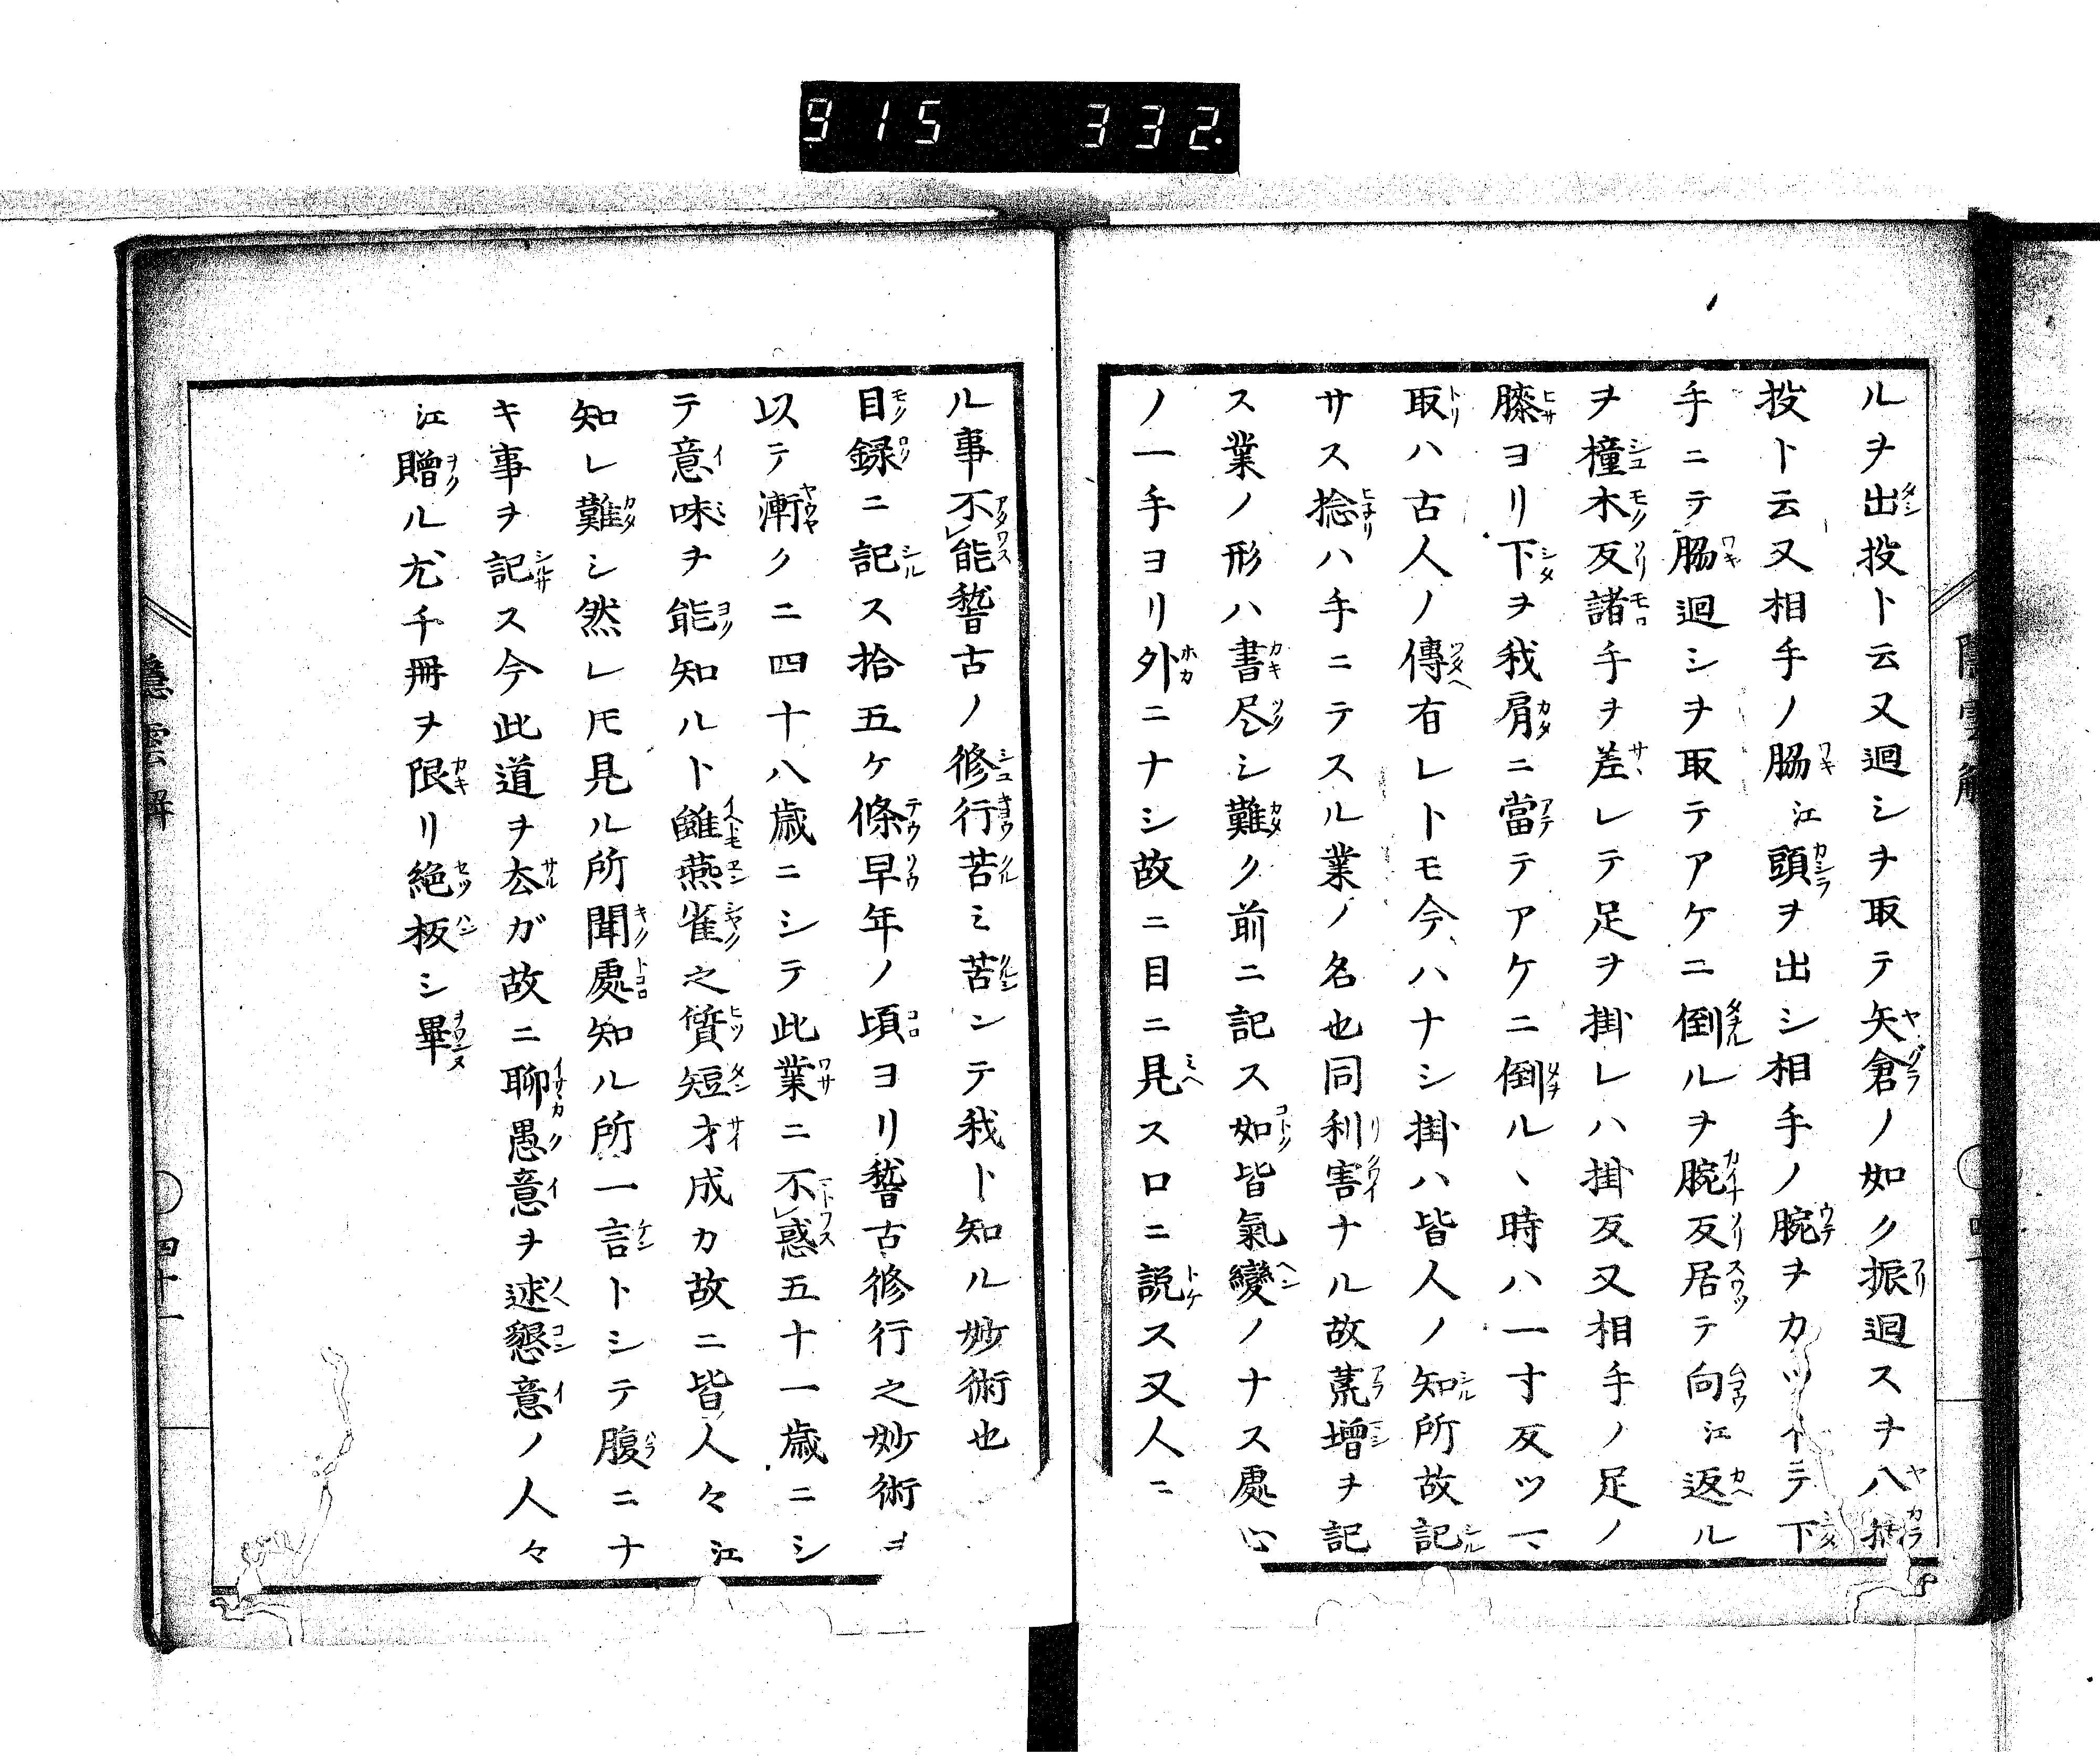 915 332.
ルヲ出投ト云又廻シヲ取テ矢倉ノ如ク振廻スヲ八
投ト云又相手ノ脇江頭ヲ出シ相手ノ腕ヲカツイテ下
手ニテ脇廻シヲ取テアケニ倒ルヲ腕反居テ向江返ル
ヲ橦木反諸手ヲ差レテ足ヲ掛レハ掛反又相手ノ足ノ
膝ヨリ下ヲ我肩ニ當テアケニ倒ルヽ時ハ一寸反ツマ
取ハ古人ノ傳有レトモ今ハナシ掛ハ皆人ノ知所故記
サス捻ハ手ニテスル業ノ名也同利害ナル故荒増ヲ記
ス業ノ形ハ書尽シ難ク前ニ記ス如皆氣變ノナス處心
ノ一手ヨリ外ニナシ故ニ目ニ見ス口ニ説ス又人ニ
ル事不レ能誓古ノ修行苦ミ苦ンテ我ト知ル妙術也
目録ニ記ス拾五ケ條早年ノ頃ヨリ誓古修行之妙術ヲ
以テ漸クニ四十八歳ニシテ此業ニ不レ惑五十一歳ニシ
テ意味ヲ能知ルト雖燕雀之質短才成カ故ニ皆人々江
知レ難シ然レ𪜈見ル所聞處知ル所一言トシテ腹ニナ
キ事ヲ記ス今此道ヲ去ガ故ニ聊愚意ヲ述懇意ノ人々
江贈ル尤千冊ヲ限リ絶板シ畢
隱雲解
四十一